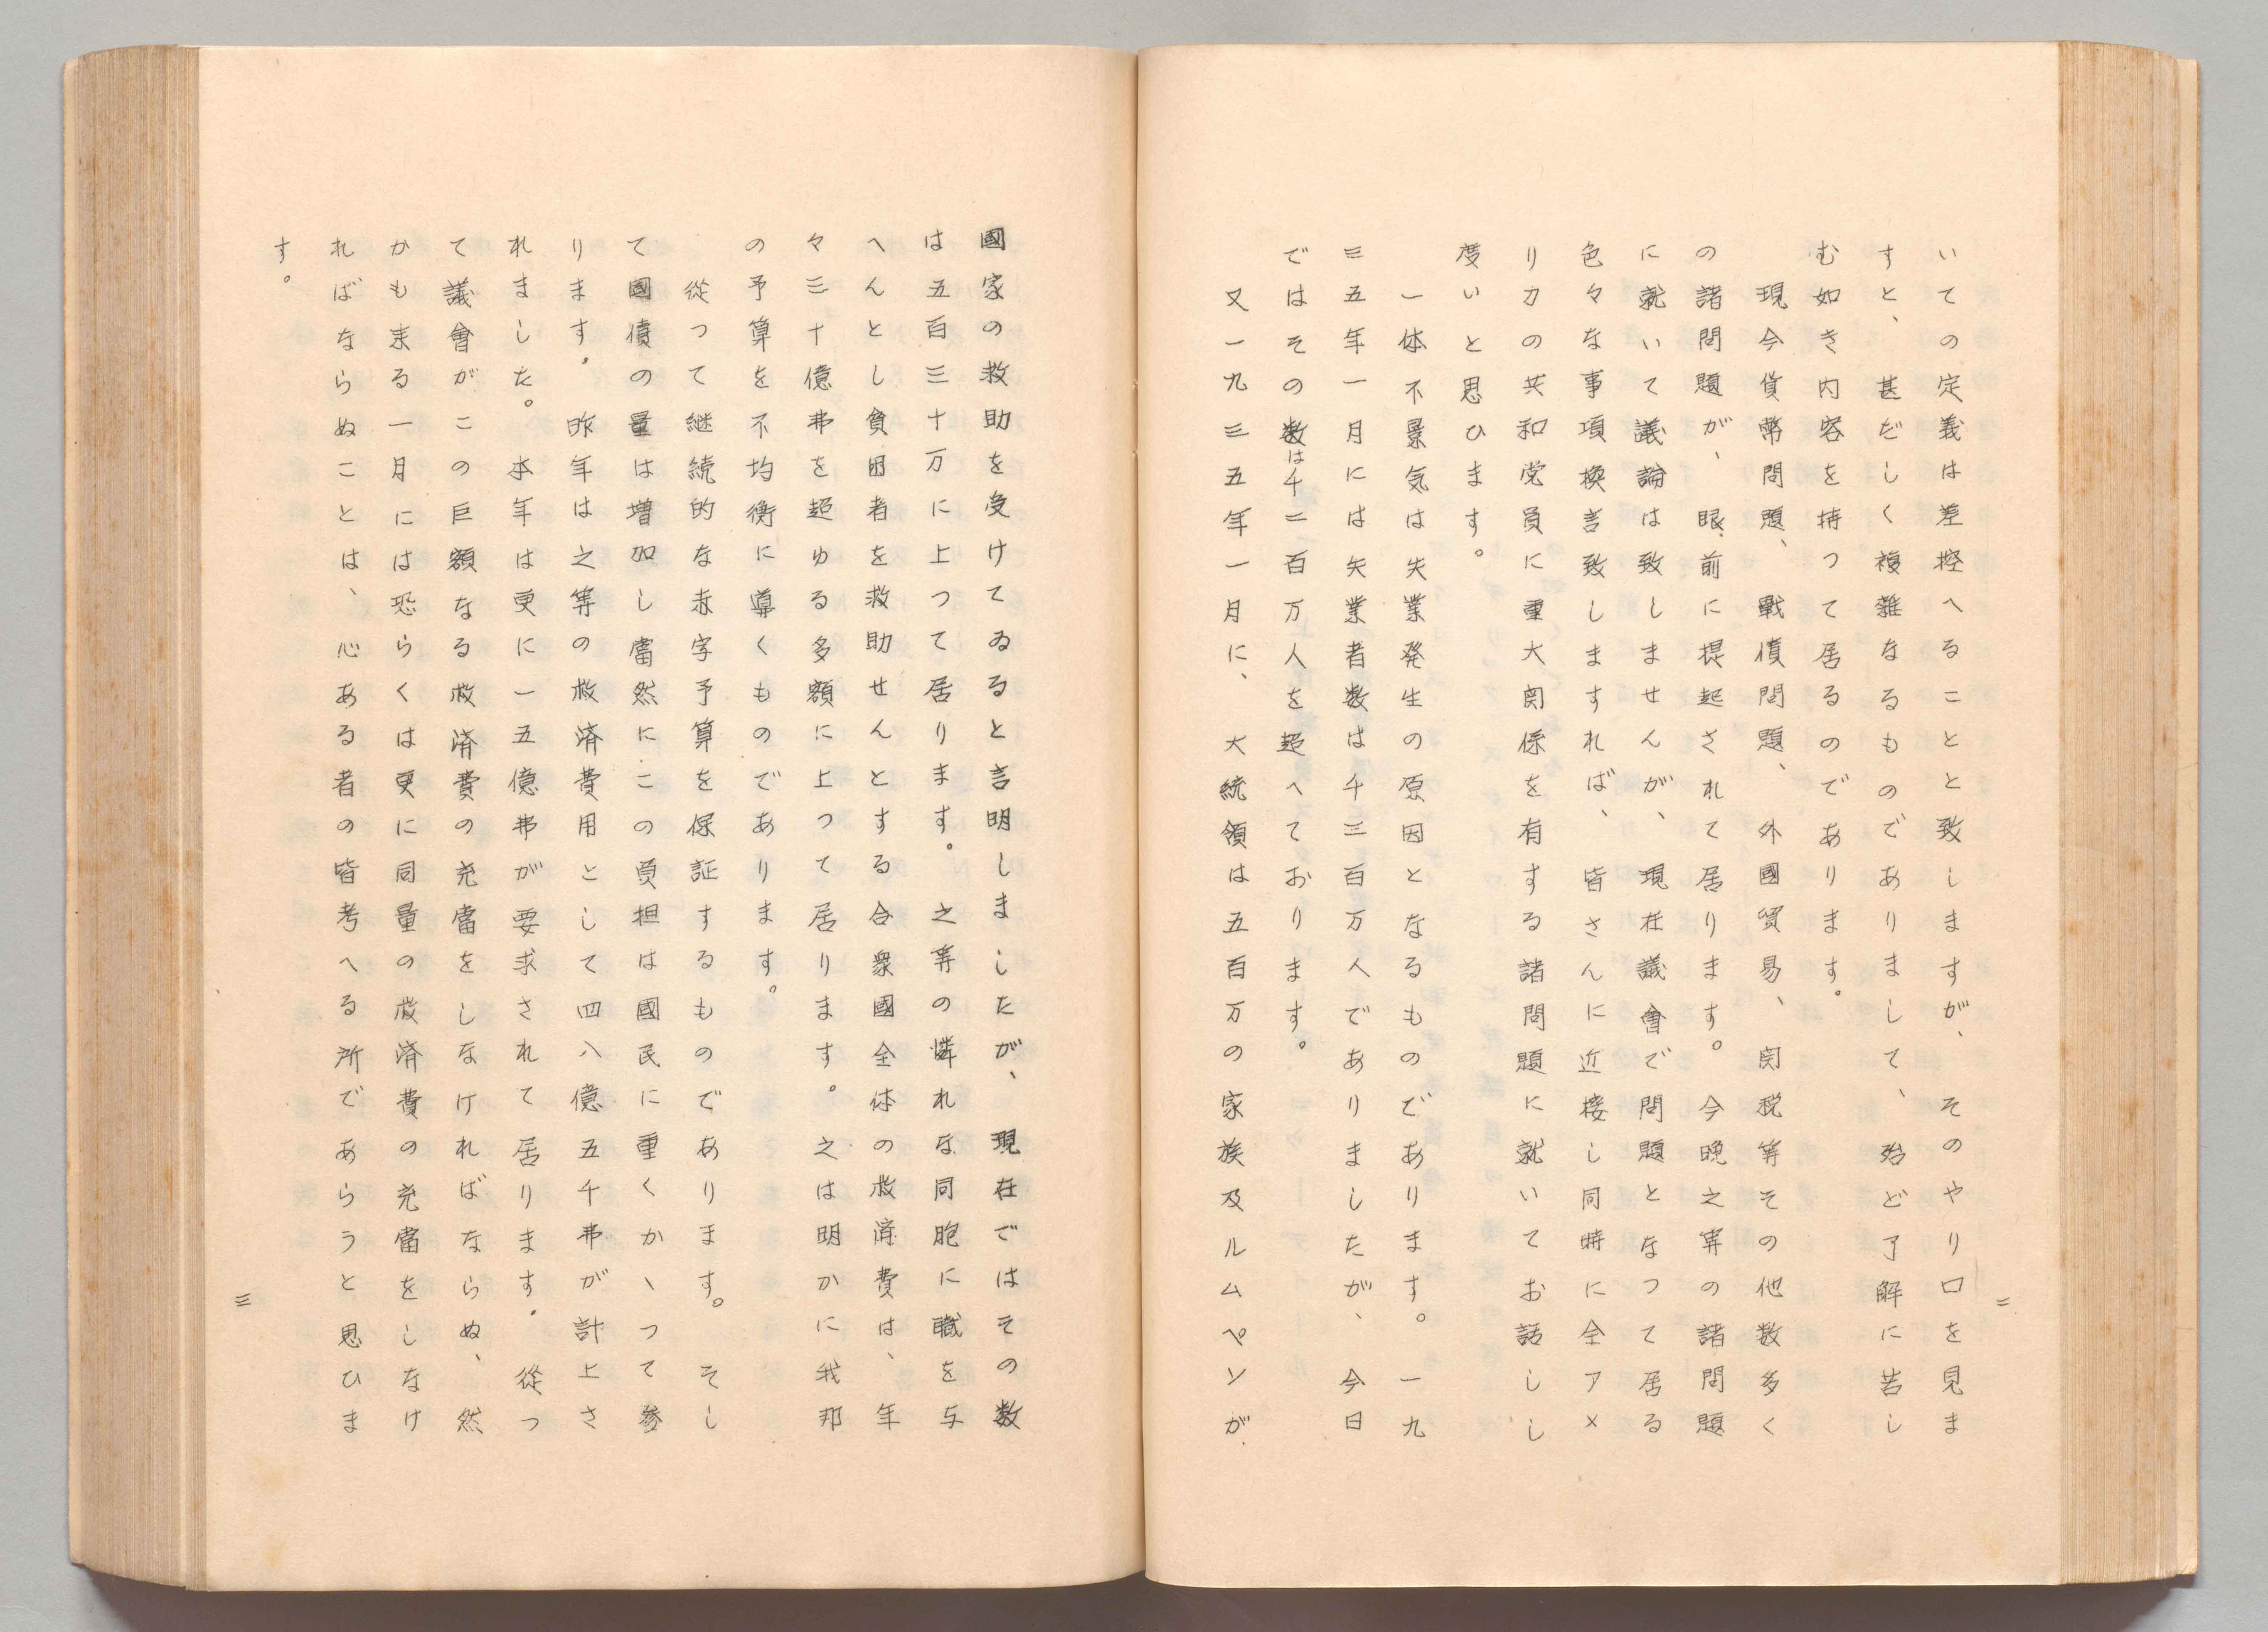 いての定義は差控へることと致しますが、そのやり口を見ま
すと、甚だしく複雑なるものでありまして、殆ど了解に苦し
む如き内容を持つて居るのであります。
現今貨幣問題、戰債問題、外國貿易、関税等その他数多く
の諸問題が、眼前に提起されて居ります。今晩之等の諸問題
に就いて議論は致しませんが、現在議會で問題となつて居る
色々な事項換言致しますれば、皆さんに近接し同時に全アメ
リカの共和党員に重大関係を有する諸問題に就いてお話しし
度いと思ひます。
一体不景気は失業発生の原因となるものであります。一九
三五年一月には失業者数は千三百万人でありましたが、今日
ではその数は千二百万人を超へております。
又一九三五年一月に、大統領は五百万の家族及ルムペンが、
二
國家の救助を受けてゐると言明しましたが、現在ではその数
は五百三十万に上つて居ります。之等の憐れな同胞に職を与
へんとし貧困者を救助せんとする合衆國全体の救済費は、年
々三十億弗を超ゆる多額に上つて居ります。之は明かに我邦
の予算を不均衡に導くものであります。
從つて継続的な赤字予算を保証するものであります。そし
て國債の量は増加し當然にこの負担は國民に重くかゝつて參
ります。昨年は之等の救済費用として四八億五千弗が計上さ
れました。本年は更に一五億弗が要求されて居ります。從つ
て議會がこの巨額なる救済費の充當をしなければならぬ、然
かも来る一月には恐らくは更に同量の救済費の充當をしなけ
ればならぬことは、心ある者の皆考へる所であらうと思ひま
す。
三